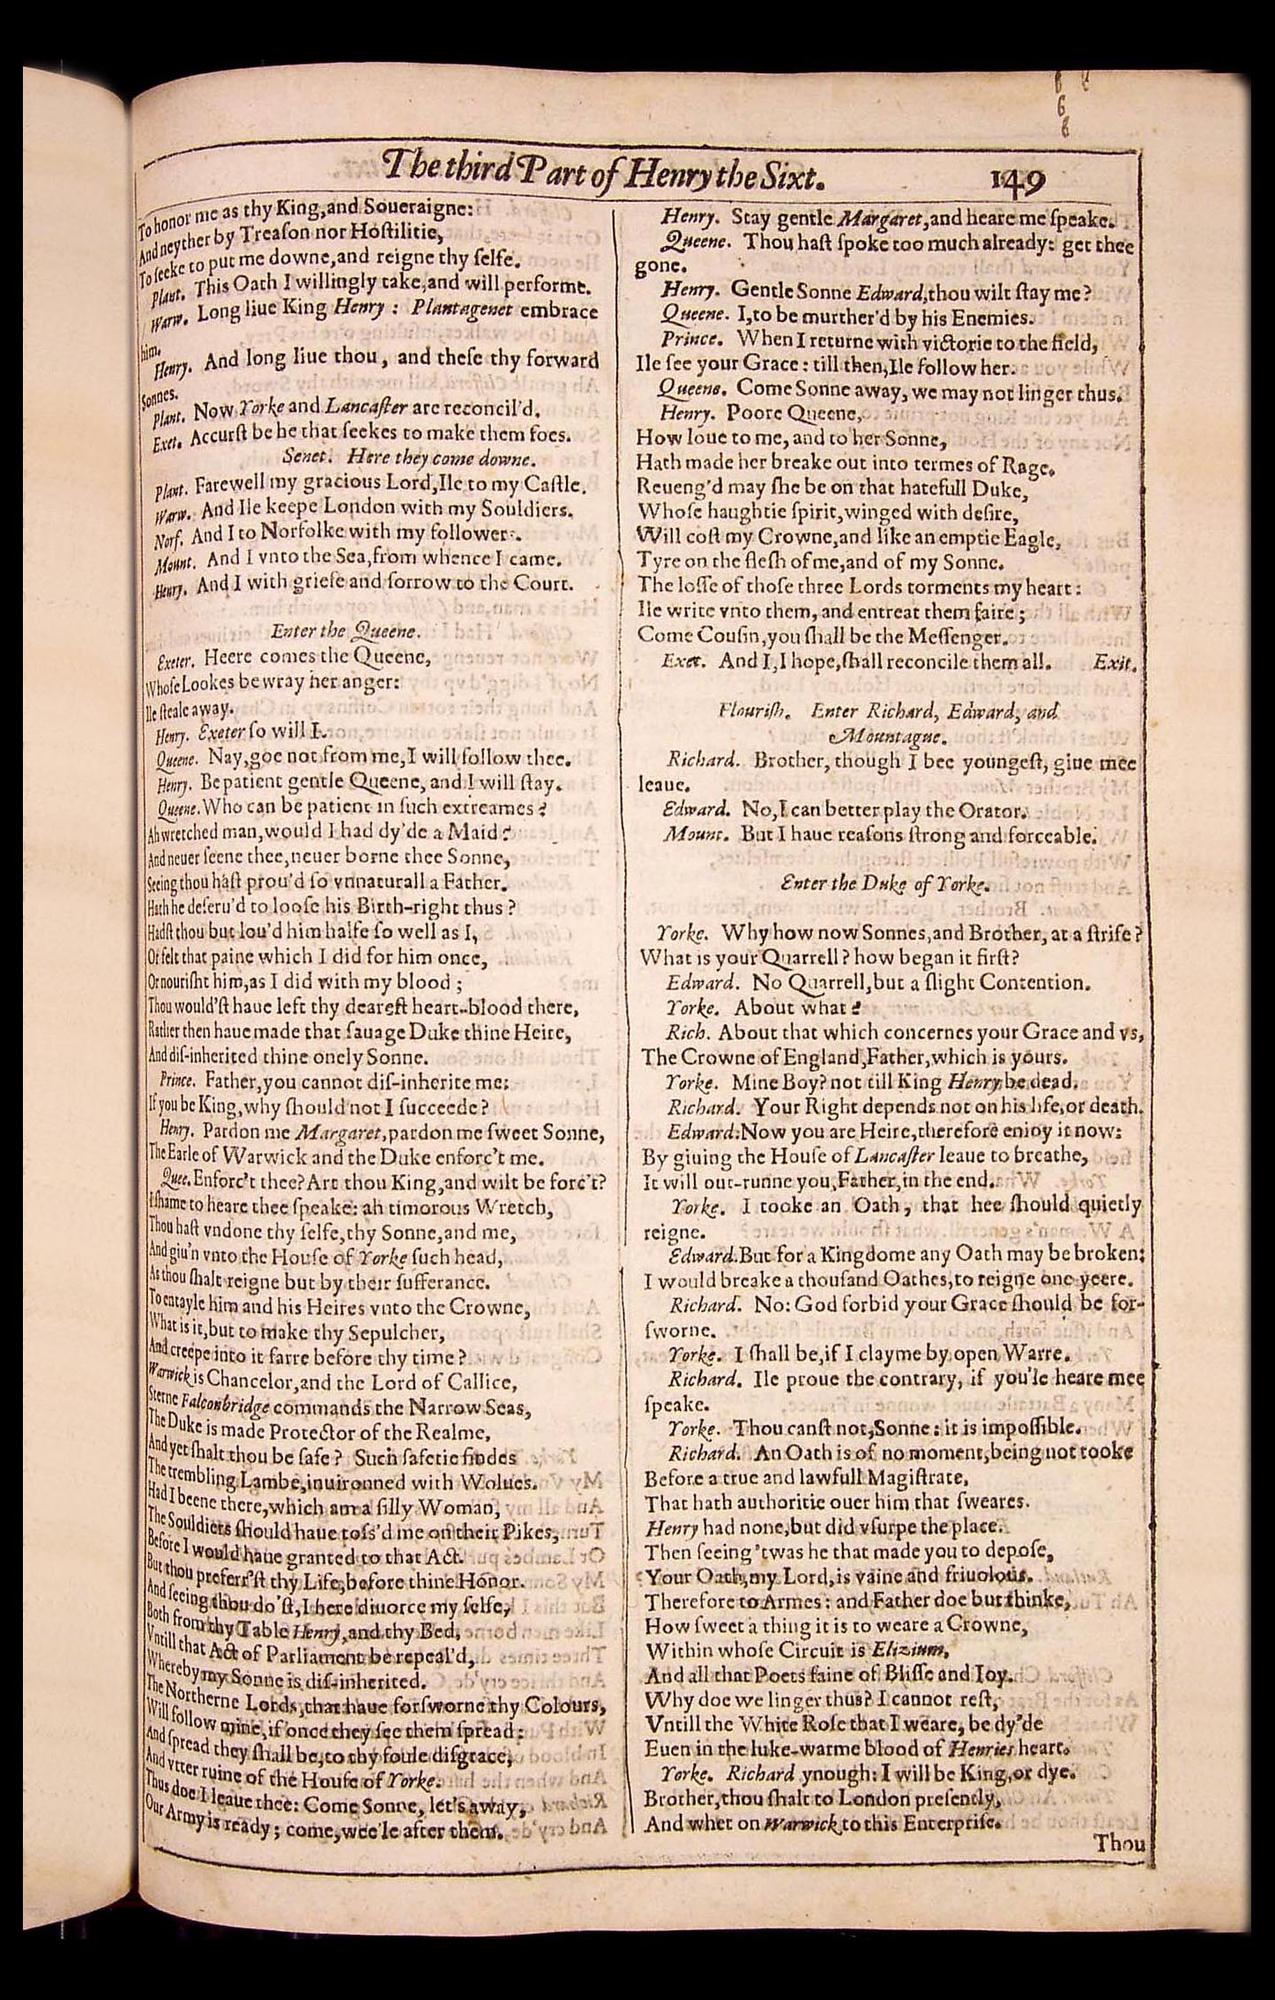 The third Part of Henry the Sixt. 149
To honor me as thy King, and Soueraigne:
And neyther by Treaſon nor Hoſtilitie,
To ſeeke to put me downe, and reigne thy ſelfe.
Plant. This Oath I willingly take, and will performe.
Warw. Long liue King Henry: Plantagenet embrace
him.
Henry. And long liue thou, and theſe thy forward
Sonnes.
Plant. Now Yorke and Lancaſter are reconcil'd.
Exet. Accurſt be he that ſeekes to make them foes.
Senet. Here they come downe.
Plant. Farewell my gracious Lord, Ile to my Caſtle.
Warw. And Ile keepe London with my Souldiers.
Norf. And I to Norfolke with my follower.
Mount. And I vnto the Sea, from whence I came.
Henry. And I with griefe and ſorrow to the Court.
Enter the Queene.
Exeter. Heere comes the Queene,
Whoſe Lookes bewray her anger:
Ile ſteale away.
Henry. Exeter ſo will I.
Queene. Nay, goe not from me, I will follow thee.
Henry. Be patient gentle Queene, and I will ſtay.
Queene. Who can be patient in ſuch extreames?
Ah wretched man, would I had dy'de a Maid?
And neuer ſeene thee, neuer borne thee Sonne,
Seeing thou haſt prou'd ſo vnnaturall a Father.
Hath he deſeru'd to looſe his Birth-right thus?
Hadſt thou but lou'd him halfe ſo well as I,
Or felt that paine which I did for him once,
Or nouriſht him, as I did with my blood;
Thou would'ſt haue left thy deareſt heart-blood there,
Rather then haue made that ſauage Duke thine Heire,
And diſ-inherited thine onely Sonne.
Prince. Father, you cannot diſ-inherite me:
If you be King, why ſhould not I ſucceede?
Henry. Pardon me Margaret, pardon me ſweet Sonne,
The Earle of Warwick and the Duke enforc't me.
Quee. Enforc't thee? Art thou King, and wilt be forc't?
I ſhame to heare thee ſpeake: ah timorous Wretch,
Thou haſt vndone thy ſelfe, thy Sonne, and me,
And giu'n vnto the Houſe of Yorke ſuch head,
As thou ſhalt reigne but by their ſufferance.
To entayle him and his Heires vnto the Crowne,
What is it, but to make thy Sepulcher,
And creepe into it farre before thy time?
Warwick is Chancelor, and the Lord of Callice,
Sterne Falconbridge commands the Narrow Seas,
The Duke is made Protector of the Realme,
And yet ſhalt thou be ſafe? Such ſafetie findes
The trembling Lambe, inuironned with Wolues.
Had I beene there, which am a ſilly Woman,
The Souldiers ſhould haue toſs'd me on their Pikes,
Before I would haue granted to that Act.
But thou preferr'ſt thy Life, before thine Honor.
And ſeeing thou do'ſt, I here diuorce my ſelfe,
Both from thy Table Henry, and thy Bed,
Vntill that Act of Parliament be repeal'd,
Whereby my Sonne is diſ-inherited.
The Northerne Lords, that haue forſworne thy Colours,
Will follow mine, if once they ſee them ſpread:
And ſpread they ſhall be, to thy foule diſgrace,
And vtter ruine of the Houſe of Yorke.
Thus doe I leaue thee: Come Sonne, let's away,
Our Army is ready; come, wee'le after them.
Henry. Stay gentle Margaret, and heare me ſpeake.
Queene. Thou haſt ſpoke too much already: get thee
gone.
Henry. Gentle Sonne Edward, thou wilt ſtay me?
Queene. I, to be murther'd by his Enemies.
Prince. When I returne with victorie to the field,
Ile ſee your Grace: till then, Ile follow her.
Queene. Come Sonne away, we may not linger thus.
Henry. Poore Queene,
How loue to me, and to her Sonne,
Hath made her breake out into termes of Rage.
Reueng'd may ſhe be on that hatefull Duke,
Whoſe haughtie ſpirit, winged with deſire,
Will coſt my Crowne, and like an emptie Eagle,
Tyre on the fleſh of me, and of my Sonne.
The loſſe of thoſe three Lords torments my heart:
Ile write vnto them, and entreat them faire;
Come Couſin, you ſhall be the Meſſenger.
Exet. And I, I hope, ſhall reconcile them all. Exit.
Flouriſh. Enter Richard, Edward, and
Mountague.
Richard. Brother, though I bee youngeſt, giue mee
leaue.
Edward. No, I can better play the Orator.
Mount. But I haue reaſons ſtrong and forceable.
Enter the Duke of Yorke.
Yorke. Why how now Sonnes, and Brother, at a ſtrife?
What is your Quarrell? how began it firſt?
Edward. No Quarrell, but a ſlight Contention.
Yorke. About what?
Rich. About that which concernes your Grace and vs,
The Crowne of England, Father, which is yours.
Yorke. Mine Boy? not till King Henry be dead.
Richard. Your Right depends not on his life, or death.
Edward. Now you are Heire, therefore enioy it now:
By giuing the Houſe of Lancaſter leaue to breathe,
It will out-runne you, Father, in the end.
Yorke. I tooke an Oath, that hee ſhould quietly
reigne.
Edward. But for a Kingdome any Oath may be broken:
I would breake a thouſand Oathes, to reigne one yeere.
Richard. No: God forbid your Grace ſhould be for-
ſworne.
Yorke. I ſhall be, if I clayme by open Warre.
Richard. Ile proue the contrary, if you'le heare mee
ſpeake.
Yorke. Thou canſt not, Sonne: it is impoſſible.
Richard. An Oath is of no moment, being not tooke
Before a true and lawfull Magiſtrate,
That hath authoritie ouer him that ſweares.
Henry had none, but did vſurpe the place.
Then ſeeing 'twas he that made you to depoſe,
Your Oath, my Lord, is vaine and friuolous.
Therefore to Armes: and Father doe but thinke,
How ſweet a thing it is to weare a Crowne,
Within whoſe Circuit is Elizium,
And all that Poets faine of Bliſſe and Ioy.
Why doe we linger thus? I cannot reſt,
Vntill the White Roſe that I weare, be dy'de
Euen in the luke-warme blood of Henries heart.
Yorke. Richard ynough: I will be King, or dye.
Brother, thou ſhalt to London preſently,
And whet on Warwick to this Enterpriſe.
Thou